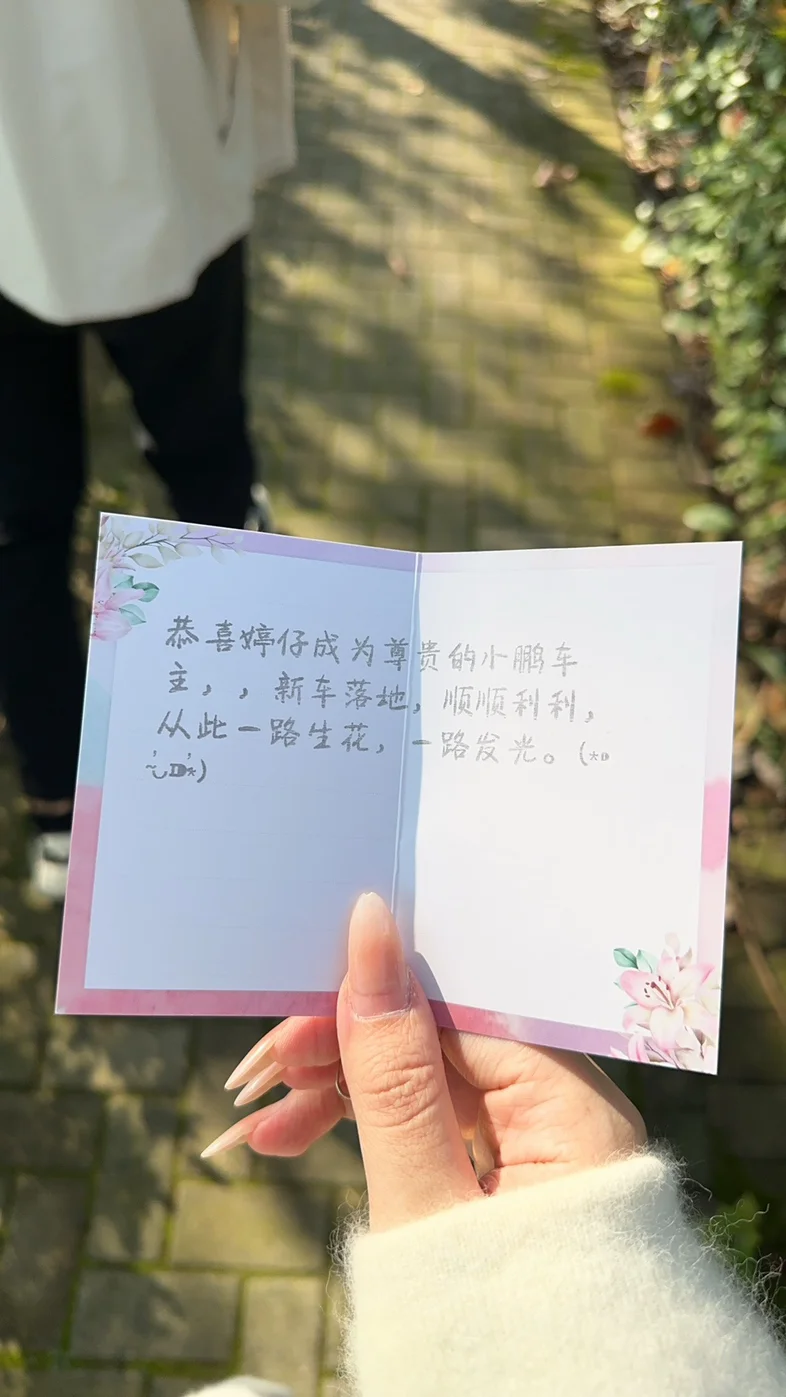 恭喜婷仔成为尊贵的小鹏车
主，，新车落地，顺顺利利，
从此一路生花，一路发光。(*
~*)